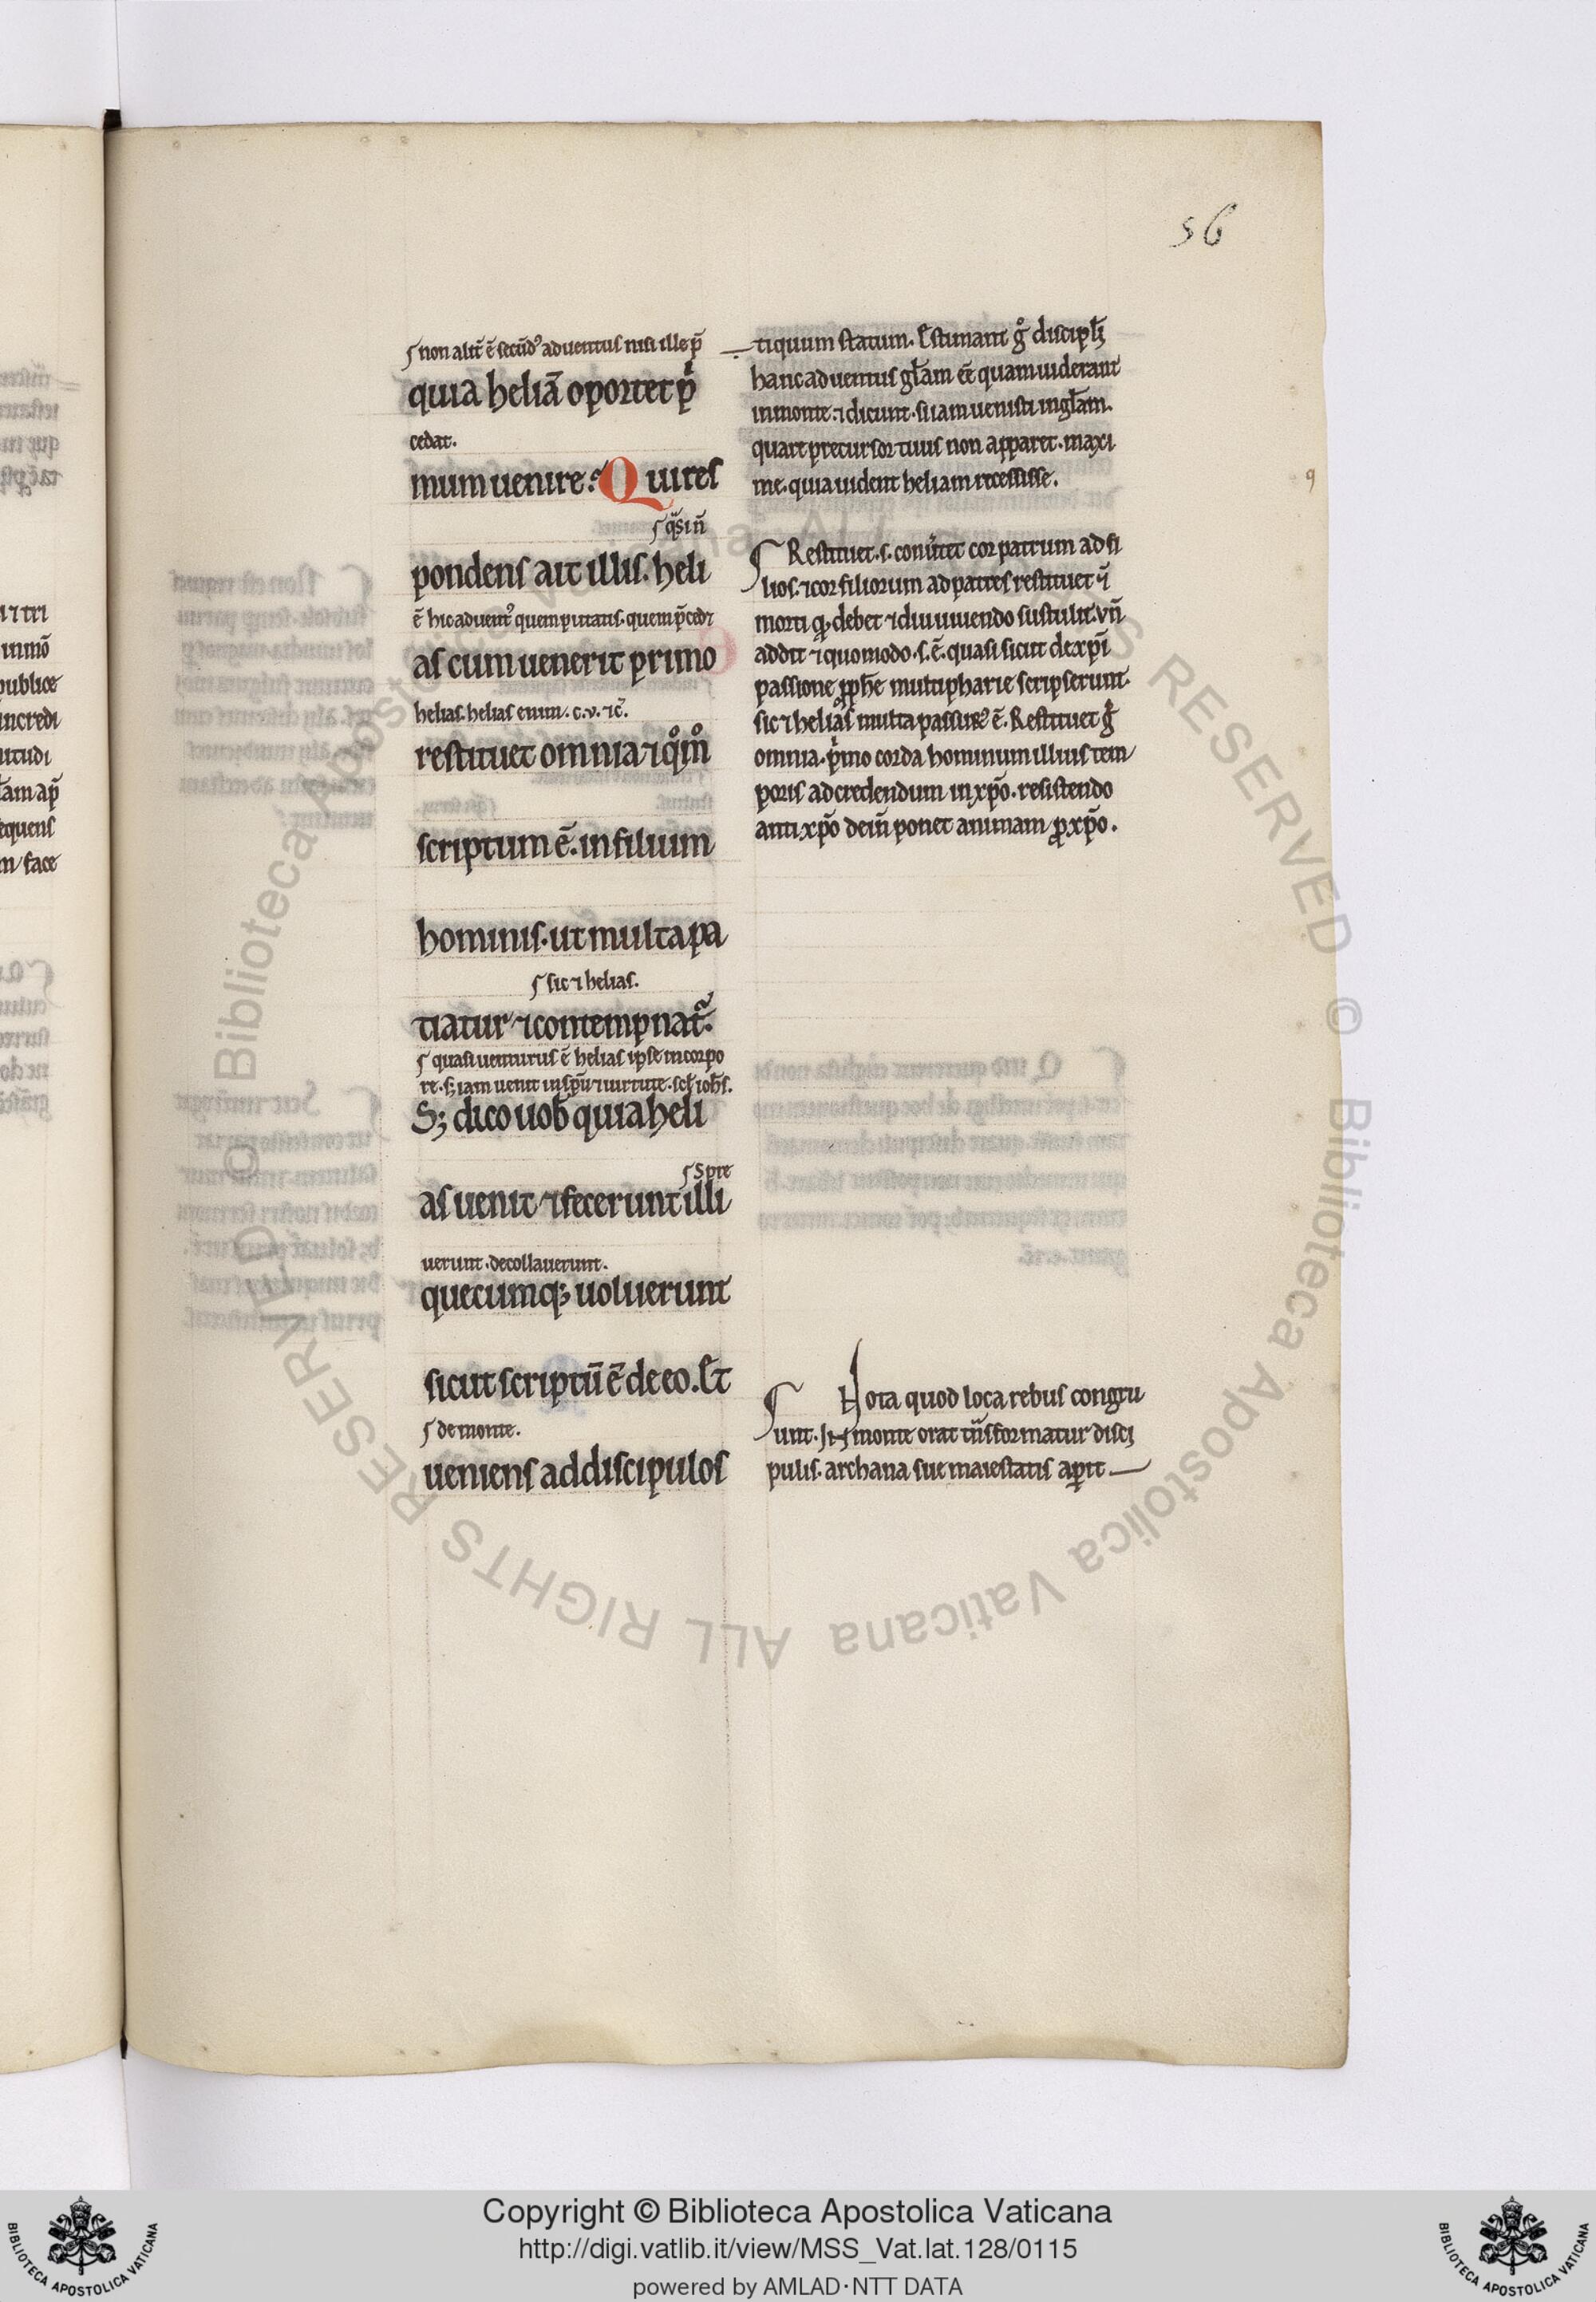 56
non alit̄ ē secūd᷒ aduentus nisi ille p̄
quia heliā oportet pͥ
cedat.
mum uenire. Qui res
q̄s in̄
pondens ait illis. heli
ē hic aduent᷒ quem putatis. quem p̄cedet
as cum uenerit primo
helias. helias enim. c. v. ⁊c̄.
restituet omnia ⁊ qͦmͦ
scriptum ē. in filium
hominis. ut multa pa
sic ⁊ helias.
tiatur ⁊ contempnat᷑.
quasi uenturus ē helias ipse in corpo
re. sꝫ iam uenit in sp̄u ⁊ uirtute. scł ioh̄s.
Sꝫ dico uob̄ quia heli
as uenit ⁊ fecerunt illi
spre
uerunt. decollauerunt.
quecumqꝫ uoluerunt
sicut scriptū ē de eo. Et
de monte.
ueniens ad discipulos
tiquum statum. Estimant gͦ discipłi
hanc aduentus głam eē quam uiderant
in monte. ⁊ dicunt. si iam uenisti in głam.
quare precursor tuus non apparet. maxi
me. quia uident heliam recessisse.
Restituet. s. conūtet cor patrum ad fi
lios. ⁊ cor filiorum ad patres restituet ⁊
morti qꝫ debet ⁊ diu uiuendo sustulit. vn̄
addit ⁊ quomodo. s. ē. quasi sicut de xp̄i
passione ꝓph̄e multipharie scripserunt.
sic ⁊ helias multa passur᷒ ē. Restituet gͦ
omnia. pͥmo corda hominum illius tem
poris ad credendum in xp̄o. resistendo
antixp̄o dein̄ ponet animam ꝓ xp̄o.
Nota quod loca rebus congru
unt. In monte orat tn̄sformatur disci
pulis. archana sue maiestatis aꝑit
Copyright © Biblioteca Apostolica Vaticana
http://digi.vatlib.it/view/MSS_Vat.lat.128/0115
powered by AMLAD·NTT DATA